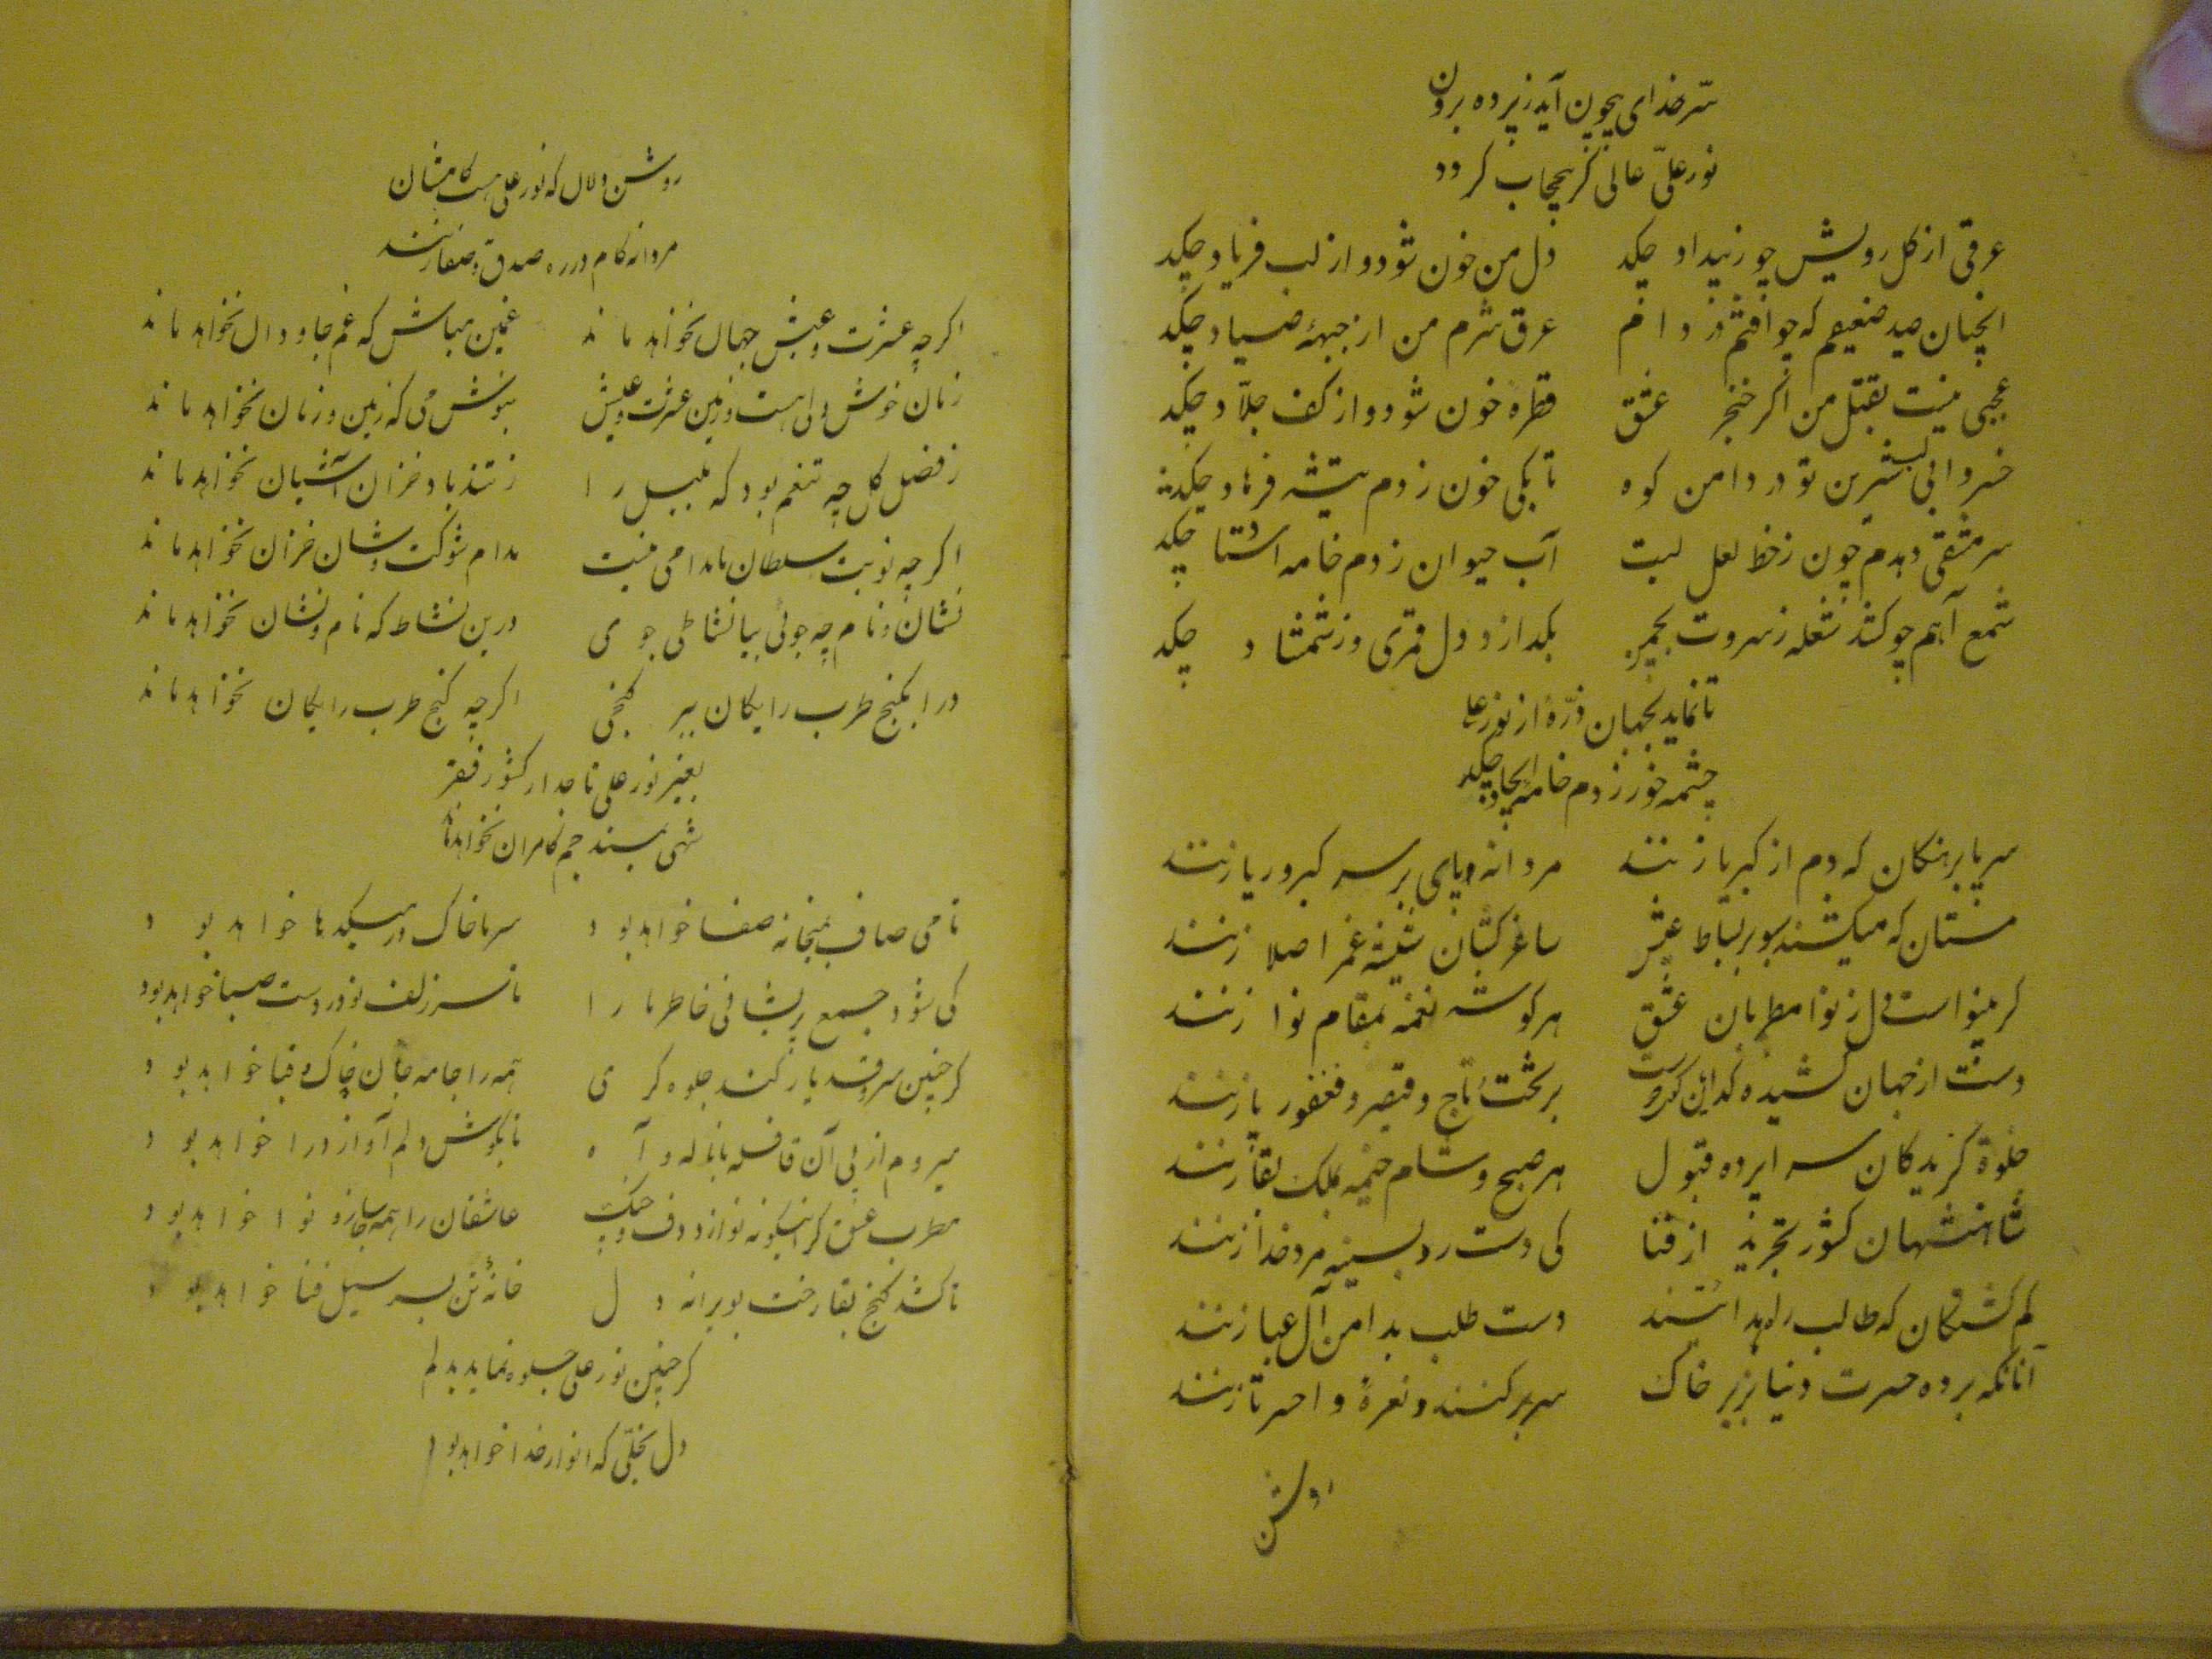 سرّ خدای بیچون آید ز پرده برون
نور علیّ عالی گر بیحجاب گردد
عرقی از گل رویش چو ز بیداد چکد دل من خون شود و از لب فریاد چکد
آنچنان صید ضعیفم که چو افتم در دام عرق شرم من از جبههٔ صیاد چکد
عجبی نیست بقتل من اگر خنجر عشق قطرهٔ خون شود و از کف جلّاد چکد
خسروا بی لب شیرین تو در دامن کوه تا بکی خون ز دم تیشه فرهاد چکد
سرمشقی دهدم چون ز خط لعل لبت آب حیوان ز دم خامه استاد چکد
شمع آهم چو کشد شعله ز سروت بچمن بگدازد دل قمری و ز شمشاد چکد
تا نماید بجهان ذرّهٔ از نور علی
چشمه خور ز دم خامه ایجاد چکد
سر پا برهنگان که دم از کبریا زنند مردانه پای بر سر کبر و ریا زنند
مستان که میکشند سبو بر بساط عیش ساغر کشان بشیشه غم را صلا زنند
گر بینواست دل ز نوا مطربان عشق هر گوشه نغمه بمقام نوا زنند
دست از جهان کشیده گدایان کوی دوست بر تخت و تاج و قیصر و فغفور پا زنند
خلوة گزیدگان سراپرده قبول هر صبح و شام خیمه بملک بقا زنند
شاهنشهان کشور تجرید از فنا کی دست رد بسینه مرد خدا زنند
گم گشتگان که طالب راه هداستند دست طلب بدامن آل عبا زنند
آنانکه برده حسرت دنیا بزیر خاک سر بر کنند و نعرهٔ وا حسرتا زنند
روشن
روشن دلان که نور علی هست کامشان
مردانه گام در ره صدق و صفا زنند
اگرچه عشرت و عیش جهان نخواهد ماند غمین مباش که غم جاودان نخواهد ماند
زمان خوش دلی است و زمین عشرت و عیش بنوش می که زمین و زمان نخواهد ماند
ز فصل گل چه تنعم بود که بلبل را ز تند باد خزان آشیان نخواهد ماند
اگرچه نوبت سلطان ما دوامی نیست مدام شوکت و شان خزان نخواهد ماند
نشان و نام چه جوئی بیا نشاطی جوی درین نشاط که نام و نشان نخواهد ماند
درا بکنج طرب رایگان ببر گنجی اگرچه گنج طرب رایگان نخواهد ماند
بغیر نور علی تاجدار کشور فقر
شهی بمسند جم کامران نخواهد ماند
تا می صاف بمیخانه صفا خواهد بود سر ما خاک در میکدها خواهد بود
کی شود جمع پریشانی خاطر ما را تا سر زلف تو در دست صبا خواهد بود
گر چنین سرو قد یار کند جلوه گری همه را جامه جان چاک و قبا خواهد بود
میروم از پی آن قافله با ناله و آه تا بگوش دلم آواز درا خواهد بود
مطرب عشق گر اینگونه نوازد دف و چنگ عاشقان را همه جا ساز و نوا خواهد بود
تا کشد گنج بقا رخت بویرانه دل خانهٔ تن بسر سیل فنا خواهد بود
گر چنین نور علی جلوه نماید بدلم
دل تجلّی که انوار خدا خواهد بود